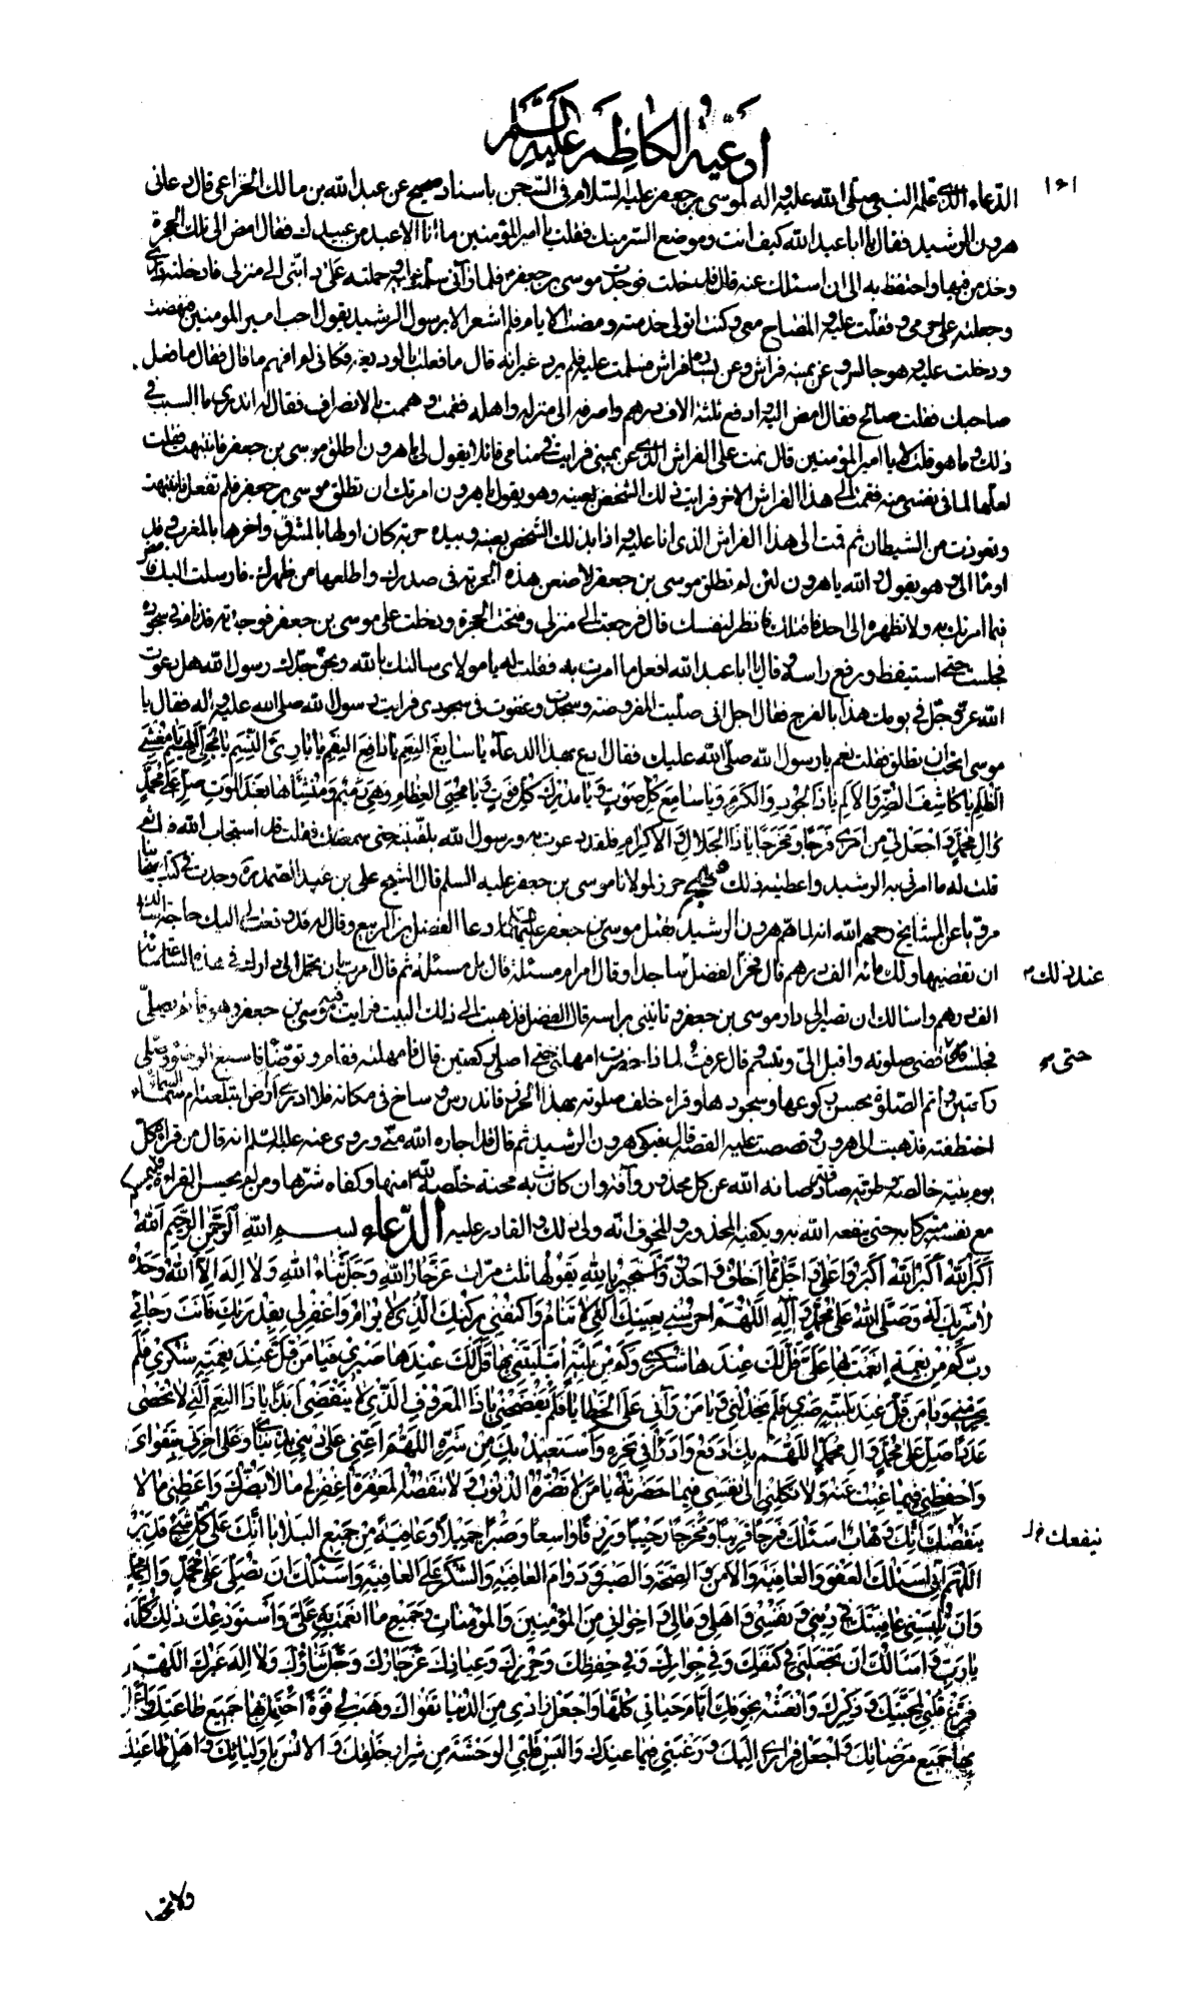 ادعية الكاظم عليه السلم
١٥١
الدعاء الذي علمه النبي صلى الله عليه واله لموسى بن جعفر عليه السلام في السجن باسناد صحيح عن عبد الله بن مالك الخزاعي قال دعاني
هرون الرشيد فقال يا ابا عبد الله كيف انت وموضع السر منك فقلت يا امير المؤمنين ما انا الا عبد من عبيدك فقال امض الى تلك الحجرة
وخذ من فيها واحتفظ به الى ان اسئلك عنه قال فدخلت فوجدت موسى بن جعفر فلما رآني سلمت عليه وحملته على دابتي الى منزلي فادخلته داري
وجعلته على حرمي وقفلت عليه والمفتاح معي وكنت اتولى خدمته ومضت الايام فلم اشعر الا برسول الرشيد يقول اجب امير المومنين فنهضت
ودخلت عليه وهو جالس وعن يمينه فراش وعن يساره فراش فسلمت عليه فلم يرد غير انه قال ما فعلت بالوديعة فكاني لم افهم ما قال فقال ما فعل
صاحبك فقلت صالح فقال امض اليه وادفع اليه ثلثة الاف درهم واصرفه الى منزله واهله فقمت وهممت بالانصراف فقال له اتدري ما السبب في
ذلك وما هو قلت لا يا امير المؤمنين قال نمت على الفراش الذي عن يميني فرايت في منامي قائلا يقول لي يا هرون اطلق موسى بن جعفر فانتبهت فقلت
لعلها لما في نفسي منه فقمت الى هذا الفراش الاخر فرايت ذلك الشخص بعينه وهو يقول يا هرون امرتك ان تطلق موسى بن جعفر فلم تفعل فانتبهت
وتعوذت من الشيطان ثم قمت الى هذا الفراش الذي انا عليه واذا بذلك الشخص بعينه وبيده حربة كان اولها بالمشرق واخرها بالمغرب وقد
اومأ الي وهو يقول والله يا هرون لئن لم تطلق موسى بن جعفر لاضعن هذه الحربة في صدرك واطلعها من ظهرك فارسلت اليك فامض
فيما امرتك به ولا تظهره الى احد فاقتلك فانظر لنفسك قال فرجعت الى منزلي وفتحت الحجرة ودخلت على موسى بن جعفر فوجدته قد نام في سجوده
فجلست حتى استيقظ ورفع راسه وقال يا ابا عبد الله افعل ما امرت به فقلت له يا مولاي سالتك بالله وبحق جدك رسول الله هل دعوت
الله عز وجل في يومك هذا بالفرج فقال اجل اني صليت المفروضة وسجدت وغفوت في سجودي فرايت رسول الله صلى الله عليه واله فقال يا
موسى اتحب ان تطلق فقلت نعم يا رسول الله صلى الله عليك فقال ادع بهذا الدعاء يا سابغ النعم يا دافع النقم يا بارئ النسم يا مجلي الهمم يا مغشي
الظلم يا كاشف الضر والالم يا ذا الجود والكرم ويا سامع كل صوت ويا مدرك كل فوت ويا محيي العظام وهي رميم ومنشئها بعد الموت صل على محمد
وال محمد واجعل لي من امري فرجا ومخرجا يا ذا الجلال والاكرام فلقد دعوت به ورسول الله يلقنيه حتى سمعتك فقلت قد استجاب الله فيك ثم
قلت له ما امرني به الرشيد واعطيته ذلك حرز لمولانا موسى بن جعفر عليه السلم قال الشيخ علي بن عبد الصمد ره وجدت في كتب اصحابنا
مرويا عن المشايخ رحمهم الله انه لما هم هرون الرشيد بقتل موسى بن جعفر عليهما السلام دعا الفضل بن الربيع وقال له قد وقعت لي اليك حاجة اسالك
ان تقضيها ولك مائة الف درهم قال فخر الفضل ساجدا وقال امر ام مسئلة قال بل مسئلة ثم قال امرت بان تحمل الى دارك في هذه الساعة مائة
عند ذلك م
الف درهم واسالك ان تصير الى دار موسى بن جعفر وتاتيني براسه قال الفضل فذهبت الى ذلك البيت فرايت فيه موسى بن جعفر وهو قائم يصلي
فجلست حتى قضى صلوته واقبل الي وتبسم وقال عرفت لماذا حضرت امهلني حتى اصلي ركعتين قال فامهلته فقام وتوضأ فاسبغ الوضوء وصلى
حتى م
ركعتين واتم الصلوة بحسن ركوعها وسجودها وقرا خلف صلوته بهذا الحرز فاندرس وساخ في مكانه فلا ادري أارض ابتلعته ام سماء
اختطفته فذهبت الى هرون وقصصت عليه القصة قال فبكى هرون الرشيد ثم قال قد اجاره الله مني وروي عنه عليه السلم انه قال من قراه كل
يوم بنية خالصة وطوية صادقة صانه الله عن كل محذور وآفة وان كانت به محنة خلصه الله منها وكفاه شرها ومن لم يحسن القراءة فليمسكه
مع نفسه متبركا به حتى ينفعه الله به ويكفيه المحذور والمخوف انه ولي ذلك والقادر عليه الدعاء بسم الله الرحمن الرحيم الله
اكبر الله اكبر الله اكبر واعلى واجل مما اخاف واحذر واستجير بالله يقولها ثلث مرات عز جار الله وجل ثناء الله ولا اله الا الله وحده
لا شريك له وصلى الله على محمد وآله اللهم احرسني بعينك التي لا تنام واكنفني بركنك الذي لا يرام واغفر لي بقدرتك فانت رجائي
رب كم من نعمة انعمت بها علي قل لك عندها شكري وكم من بلية ابتليتني بها قل لك عندها صبري فيا من قل عند نعمته شكري فلم
يحرمني ويا من قل عند بليته صبري فلم يخذلني ويا من رآني على الخطايا فلم يفضحني يا ذا المعروف الذي لا ينقضي ابدا يا ذا النعم التي لا تحصى
عددا صل على محمد وال محمد اللهم بك ادفع وادرأ في نحره واستعيذ بك من شره اللهم اعني على ديني بدنياي وعلى اخرتي بتقواي
واحفظني فيما غبت عنه ولا تكلني الى نفسي فيما حضرته يا من لا تضره الذنوب ولا تنقصه المغفرة اغفر لي ما لا يضرك واعطني ما لا
ينقصك انك وهاب اسئلك فرجا قريبا ومخرجا رحيبا ورزقا واسعا وصبرا جميلا وعافية من جميع البلايا انك على كل شيء قدير
ينفعك خ ل
اللهم اني اسئلك العفو والعافية والامن والصحة والصبر ودوام العافية والشكر على العافية واسئلك ان تصلي على محمد وال محمد
وان تلبسني عافيتك في ديني ونفسي واهلي ومالي واخواني من المؤمنين والمؤمنات وجميع ما انعمت به علي واستودعك ذلك كله
يا رب واسالك ان تجعلني في كنفك وفي جوارك وفي حفظك وحرزك وعياذك عز جارك وجل ثناؤك ولا اله غيرك اللهم
فرغ قلبي لمحبتك وذكرك وانعشه بخوفك ايام حياتي كلها واجعل زادي من الدنيا تقواك وهب لي قوة احتمل بها جميع طاعتك واعمل
بها جميع مرضاتك واجعل فراري اليك ورغبتي فيما عندك والبس قلبي الوحشة من شرار خلقك والانس باوليائك واهل طاعتك